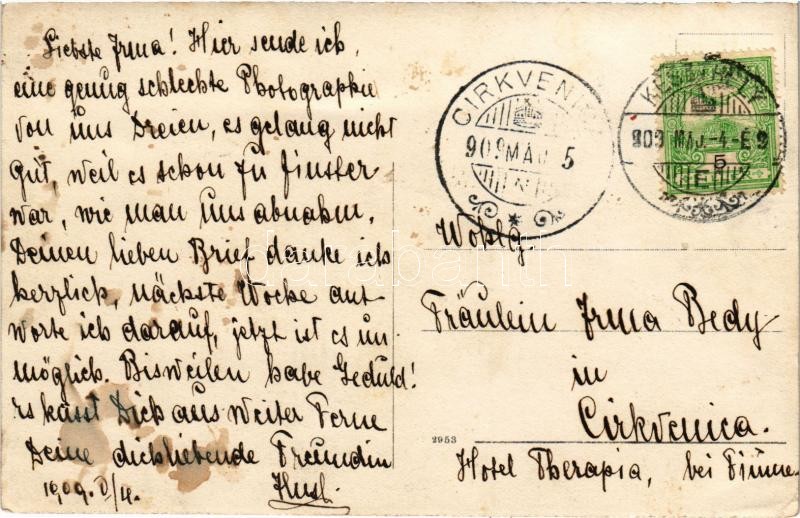 Liebste Irma! Hier sende ich,
eine genug schlechte Photographie
von uns Dreien, es gelang nicht
gut, weil es schon zu finster
war, wie man uns abnahm.
Deinen lieben Brief danke ich
herzlich, nächste Woche ant-
worte ich darauf, jetzt ist es un-
möglich. Bisweilen habe Geduld!
Es küsst Dich aus weiter Ferne
Deine dichliebende Freundin
1909. V/4.
CIRKVENI
909 MÁJ. 5
909 MÁJ. -4.-E 9
5
E
Wohlg.
Fräulein Irma Bedy
in
Cirkvenica.
Hotel Therapia, bei Fiume.
2953
darabanth